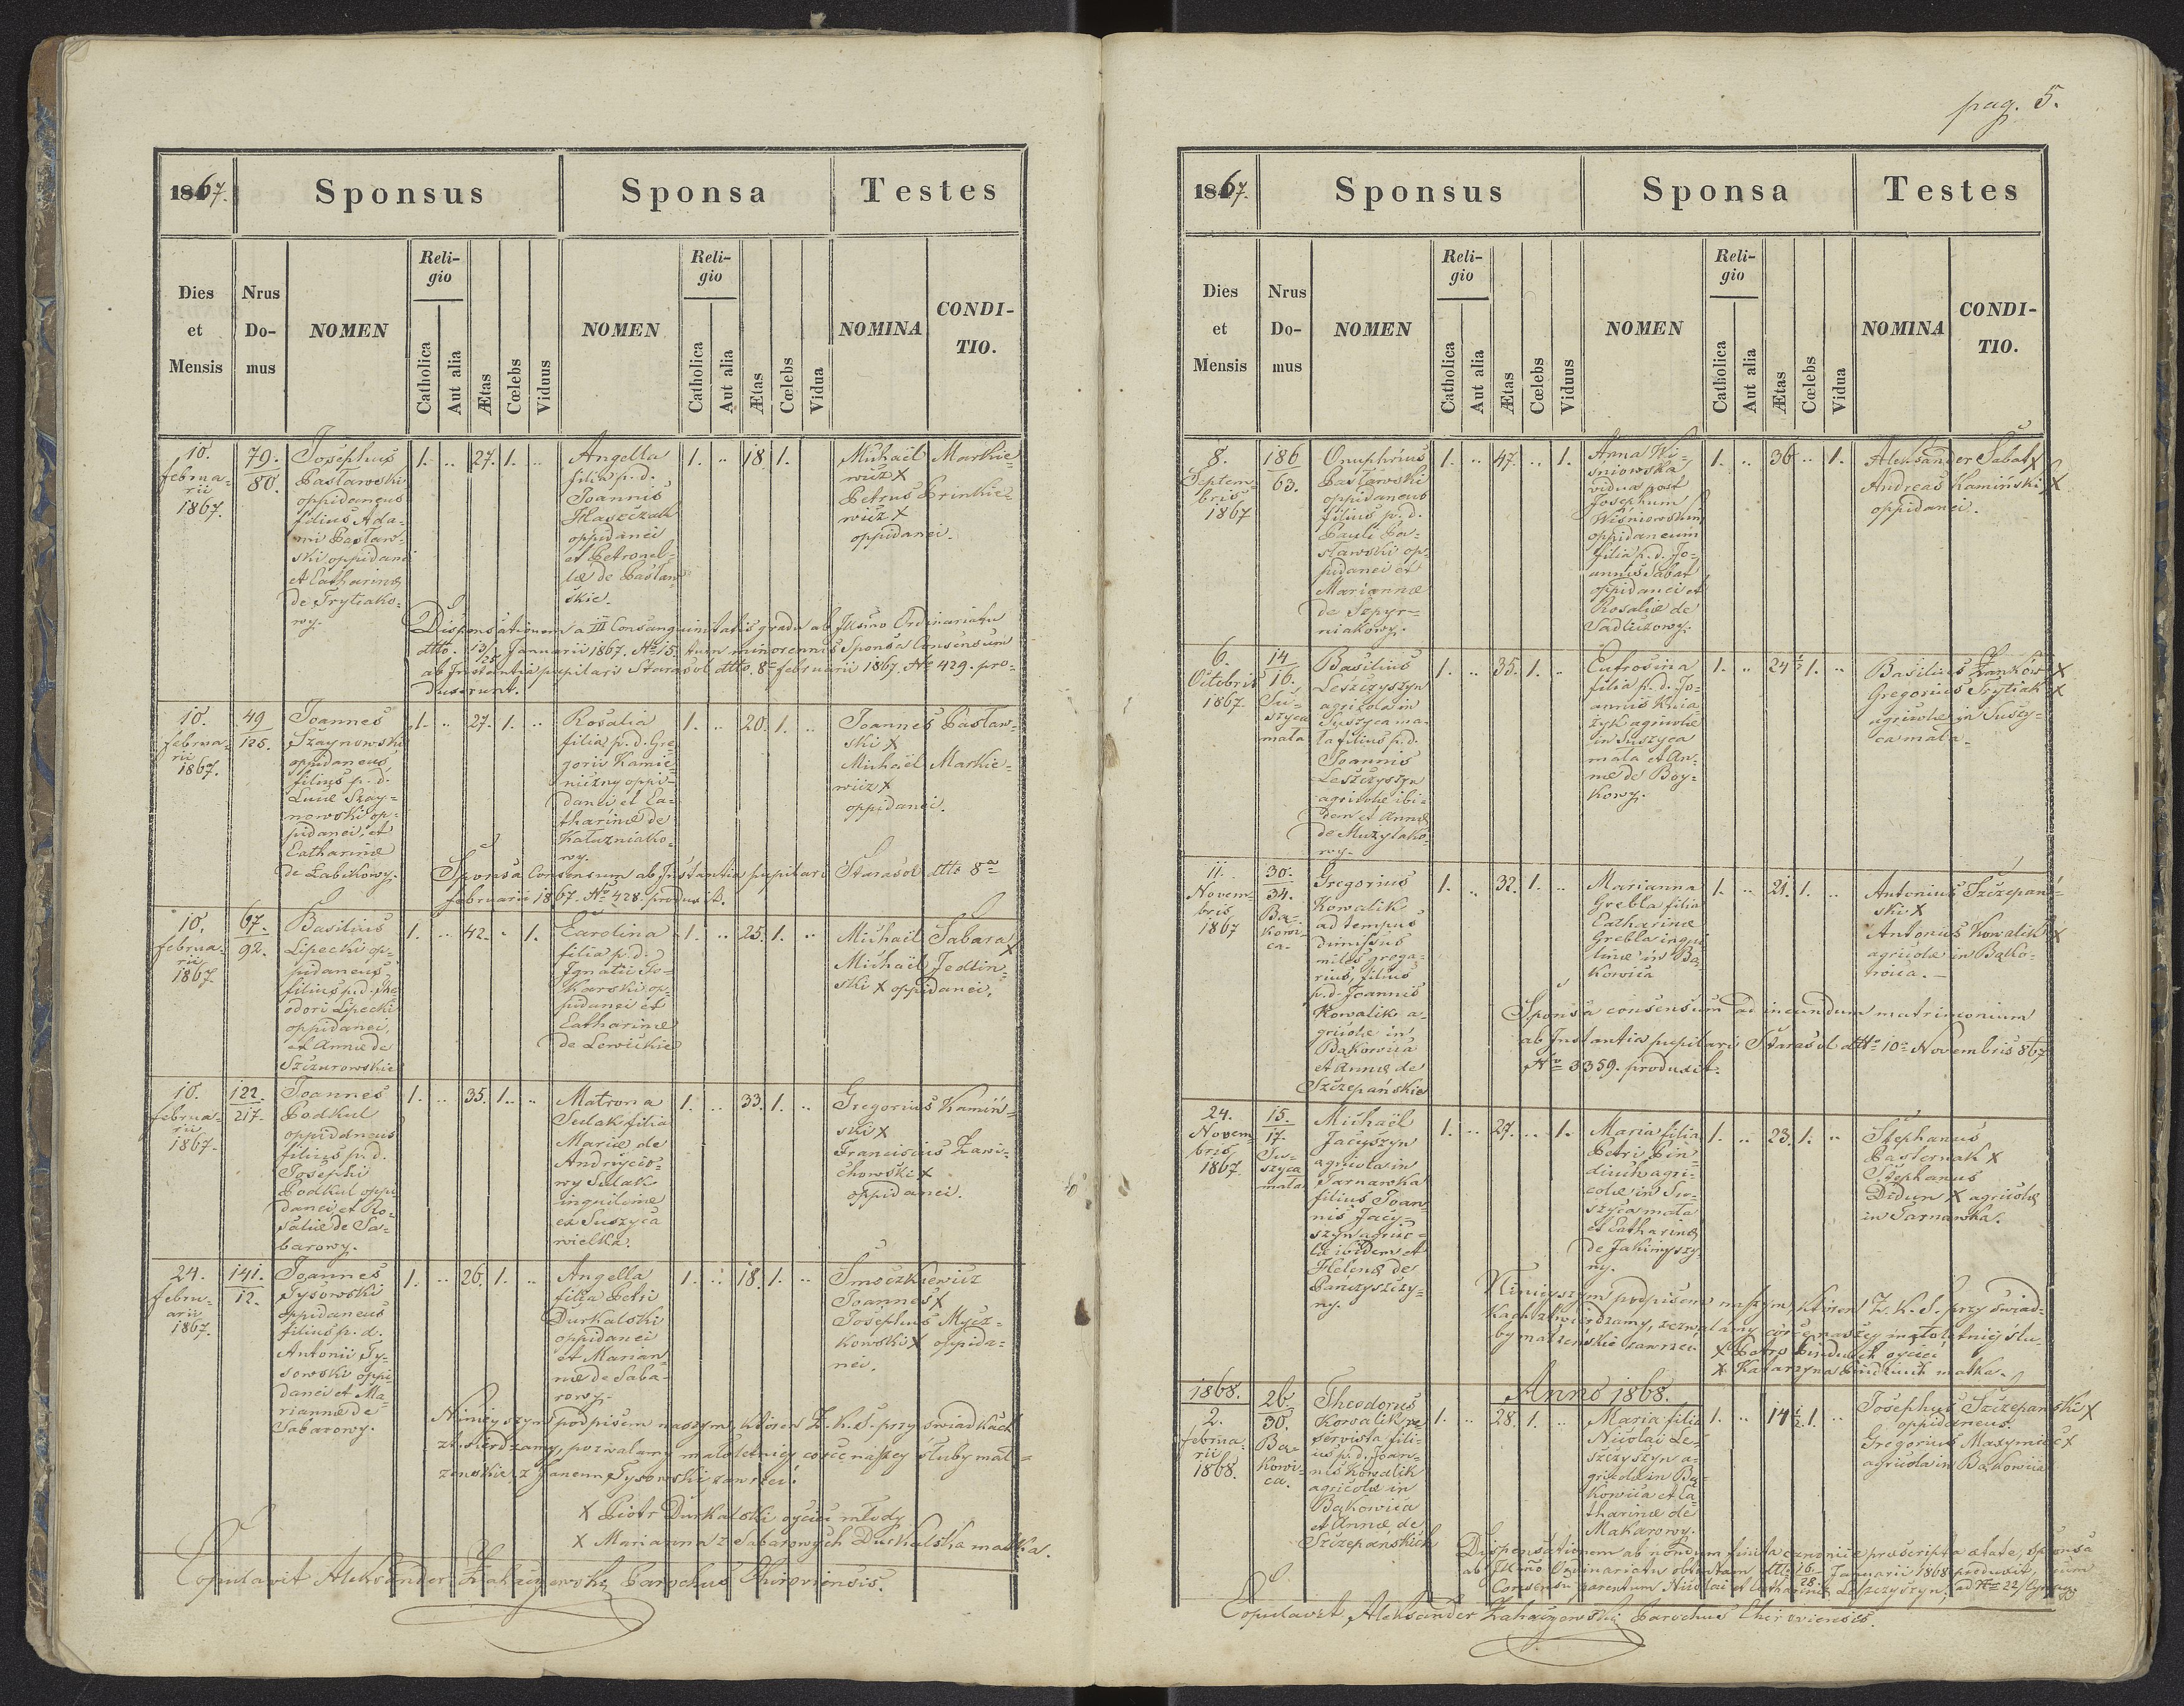 1867.
Sponsus
Sponsa
Testes
Dies
et
Mensis
Nrus
Do-
mus
NOMEN
Reli-
gio
Catholica
Aut alia
Ætas
Cœlebs
Viduus
NOMEN
Reli-
gio
Catholica
Aut alia
Ætas
Cœlebs
Vidua
NOMINA
CONDI-
TIO.
10.
februa-
rii
1867.
79.
80.
Josephus
Pasławski
oppidaneus
filius Ada-
mi Pasław-
ski oppidanei
et Catharinæ
de Trytiako-
wy.
1. .. 27. 1. ..
Angella
filia p. d.
Joannis
Haszczak
oppidanei
et Petronel-
læ de Pasław
skie.
1. .. 18. 1.
Michaël Markie-
wicz X
Petrus Brinkie-
wicz X
oppidanei.
Dispensationem a III Consanguinitatis gradu ab Illsmo Ordinariatu
dtto. Januarii 1867. No 15. tum minorennis Sponsa Consensum
ab Instantia pupilari Starasol dtto. 8a februarii 1867. No 429. pro-
duxerunt.
10.
februa-
rii
1867.
49
125.
Joannes
Szaynowski
oppidaneus
filius p. d.
Lucæ Szay-
nowski op-
pidanei, et
Catharinæ
de Łabikowy.
1. .. 27. 1. ..
Rosalia
filia p. d. Gre
gorii Kamie
niczny oppi-
danei et Ca-
tharinæ de
Kałuzniako-
wy.
1. .. 20. 1. ..
Joannes Pasław-
ski X
Michaël Markie-
wicz X
oppidanei.
Sponsa Consensum ab Instantia pupilari Starasol dtto 8a
februarii 1867. No 428. produxit.
10.
februa-
rii
1867.
67.
92.
Basilius
Lipecki op-
pidaneus
filius p. d. The
odori Lipecki
oppidanei,
et Annæ de
Szczurowskie
1. .. 42. .. 1.
Carolina
filia p. d.
Ignatii To-
karski op-
pidanei et
Catharinæ
de Lewickie
1. .. 25. 1. ..
Michaël Sabara X
Michaël Jedlin-
ski X oppidanei.
10.
februa-
rii
1867.
122.
217.
Joannes
Podkul
oppidaneus
filius p. d.
Josephi
Podkul oppi
danei, et Ro-
saliæ de Sa-
barowy.
1. .. 35. 1. ..
Matrona
Sulak filia
Mariæ de
Andruycio-
wy Sulak
inquilinæ
ex Suszyca
wielka.
1. .. 33. 1. ..
Gregorius Kamiń-
ski X
Franciscus Zawi-
chowski X
oppidanei.
24.
febru-
arii
1867.
141.
12.
Joannes
Tysowski
oppidaneus
filius p. d.
Antonii Ty-
sowski oppi
danei et Ma-
riannæ de
Sabarowy.
1. .. 26. 1. ..
Angella
filia Petri
Durkalski
oppidanei
et Marian-
næ de Saba-
rowy.
1. .. 18. 1. ..
Smoczkiewicz
Joannes X
Josephus Mycz-
kowski X oppida-
nei.
Niniejszym podpisem naszym, któren Z. K. S. przy świadkach
stwierdzamy, pozwalamy małoletniej córce naszej śluby mał-
żeńskie z Janem Tysowski zawrzeć.
X Piotr Durkalski oyciec młody
X Marianna z Sabarowych Durkalska matka.
Copulavit Aleksander Parochus Chiroviensis.
pag. 5.
1867.
Sponsus
Sponsa
Testes
Dies
et
Mensis
Nrus
Do-
mus
NOMEN
Reli-
gio
Catholica
Aut alia
Ætas
Cœlebs
Viduus
NOMEN
Reli-
gio
Catholica
Aut alia
Ætas
Cœlebs
Vidua
NOMINA
CONDI-
TIO.
8.
Septem-
bris
1867
186
63.
Onuphrius
Pasławski
oppidaneus
filius p. d.
Pauli Pa-
sławski op-
pidanei et
Mariannæ
de Szpyr-
niakowy.
1. .. 47. .. 1.
Anna Wi-
sniowska
vidua post
Josephum
Wiśniowskim
oppidaneum
filia p. d. Jo-
annis Sabat
oppidanei et
Rosaliæ de
Sadliczowy.
1. .. 36 .. 1.
Aleksander Sabat X
Andreas Kamiński X
oppidanei.
6.
Octobris
1867.
14
16.
Su-
szyca
mała
Basilius
Leszczyszyn
agricola in
Suszyca ma-
ła filius p. d.
Joannis
Leszczyszyn
agricolæ ibi-
dem et Annæ
de Muzylako
wy.
1. .. 35. 1. ..
Eufrosina
filia p. d. Jo-
annis Knia-
zyk agricolæ
in Suszyca
mała et An-
næ de Boy-
kowy.
1. .. 24 ½ 1. ..
Basilius Zanków X
Gregorius Trytiak X
agricolæ in Suszy-
ca mała.
11.
Novem-
bris
1867
30.
34.
Bą-
kowi-
ca.
Gregorius
Kowalik
ad tempus
dimissus
miles grega-
rius, filius
p. d. Joannis
Kowalik a-
gricolæ in
Bąkowica
et Annæ de
Szczepańskie
1. .. 32. 1. ..
Marianna
Grebla filia
Catharinæ
Grebla inqui
linæ in Bą
kowica
1. .. 21. 1. ..
Antonius Szczepań-
ski X
Antonius Kowalik X
agricolæ in Bąko-
wica.
Sponsa consensum ad ineundum matrimonium
ab Instantia pupilari Starasol dtto 10a Novembris 867
No 3359. produxit.
24.
Novem-
bris
1867
15.
17.
Su-
szyca
mała
Michaël
Jacyszyn
agricola in
Tarnawka
filius Joan-
nis Jacy-
szyn agrico-
la ibidem et
Helenæ de
Panczyszczy-
ny.
1. .. 27. .. 1.
Maria filia
Petri Bin-
diuch agri-
colæ in Su-
szyca mała
et Catharinæ
de Jakimyszy
ny.
1. .. 23. 1. ..
Stephanus
Pasternak X
Stephanus
Didun X agricolæ
in Tarnawka.
Niniejszym podpisem naszym, któren Z. K. S. przy świad-
kach stwierdzamy, zezwalamy córce naszej małoletniej ślu-
by małżeńskie zawrzeć
X Petro Bindiuch oyciec
X Katarzyna Bindiuch matka.
1868.
Anno 1868.
2.
februa-
rii
1868.
26.
30.
Bą-
kowi-
ca.
Theodorus
Kowalik re
servista fili-
us p. d. Joan-
nis Kowalik
agricolæ in
Bąkowica
et Annæ de
Szczepańskich
1. .. 28. 1. ..
Maria filia
Nicolai Le-
szczyszyn a-
gricolæ in Bą-
kowica et Ca
tharinæ de
Makarowy.
1. .. 14 ½ 1. ..
Josephus Szczepański X
oppidaneus.
Gregorius Maxymiec X
agricola in Bąkowica
Dispensationem ab nondum finita canonice præscripta ætate, sponsa
ab Illsmo Ordinariatu obtentam dtto 16. Januarii 1868 produxit, cum
Consensu parentum Nicolai et Catharinæ Leszczyszyn,
Copulavit Aleksander Parochus Chiroviensis.